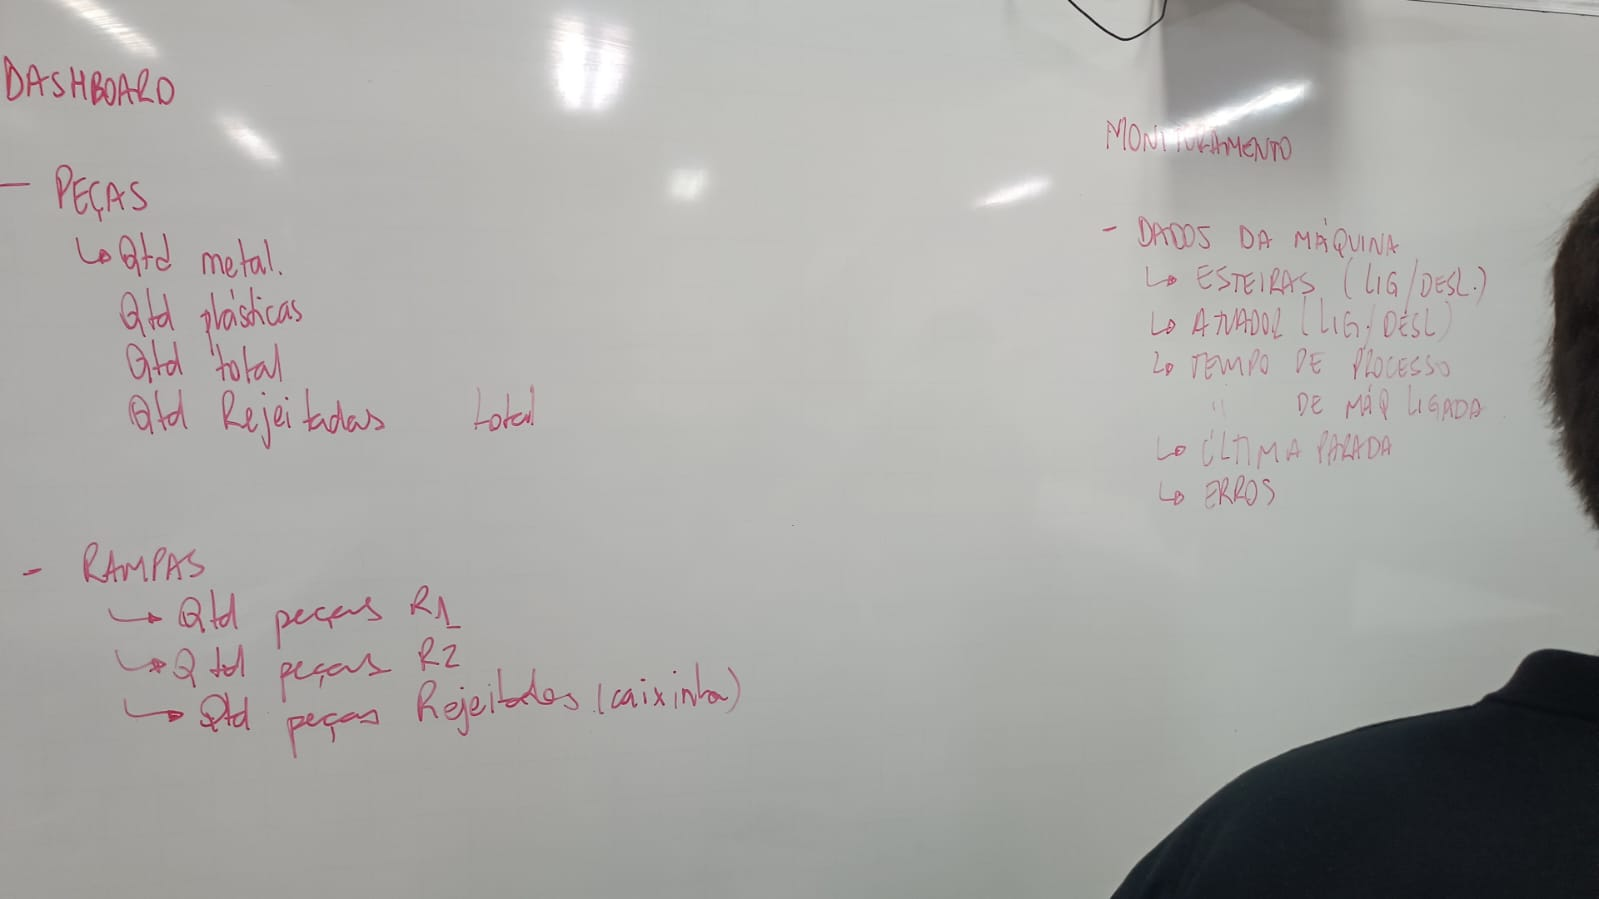 DASHBOARD
- PEÇAS
↳ Qtd metal.
Qtd plásticas
Qtd total
Qtd Rejeitadas total
- RAMPAS
↳ Qtd peças R1
↳ Qtd peças R2
↳ Qtd peças Rejeitadas (caixinha)
MONITORAMENTO
- DADOS DA MÁQUINA
↳ ESTEIRAS (LIG/DESL.)
↳ ATUADOR (LIG./DESL)
↳ TEMPO DE PROCESSO
" DE MÁQ LIGADA
↳ ÚLTIMA PARADA
↳ ERROS